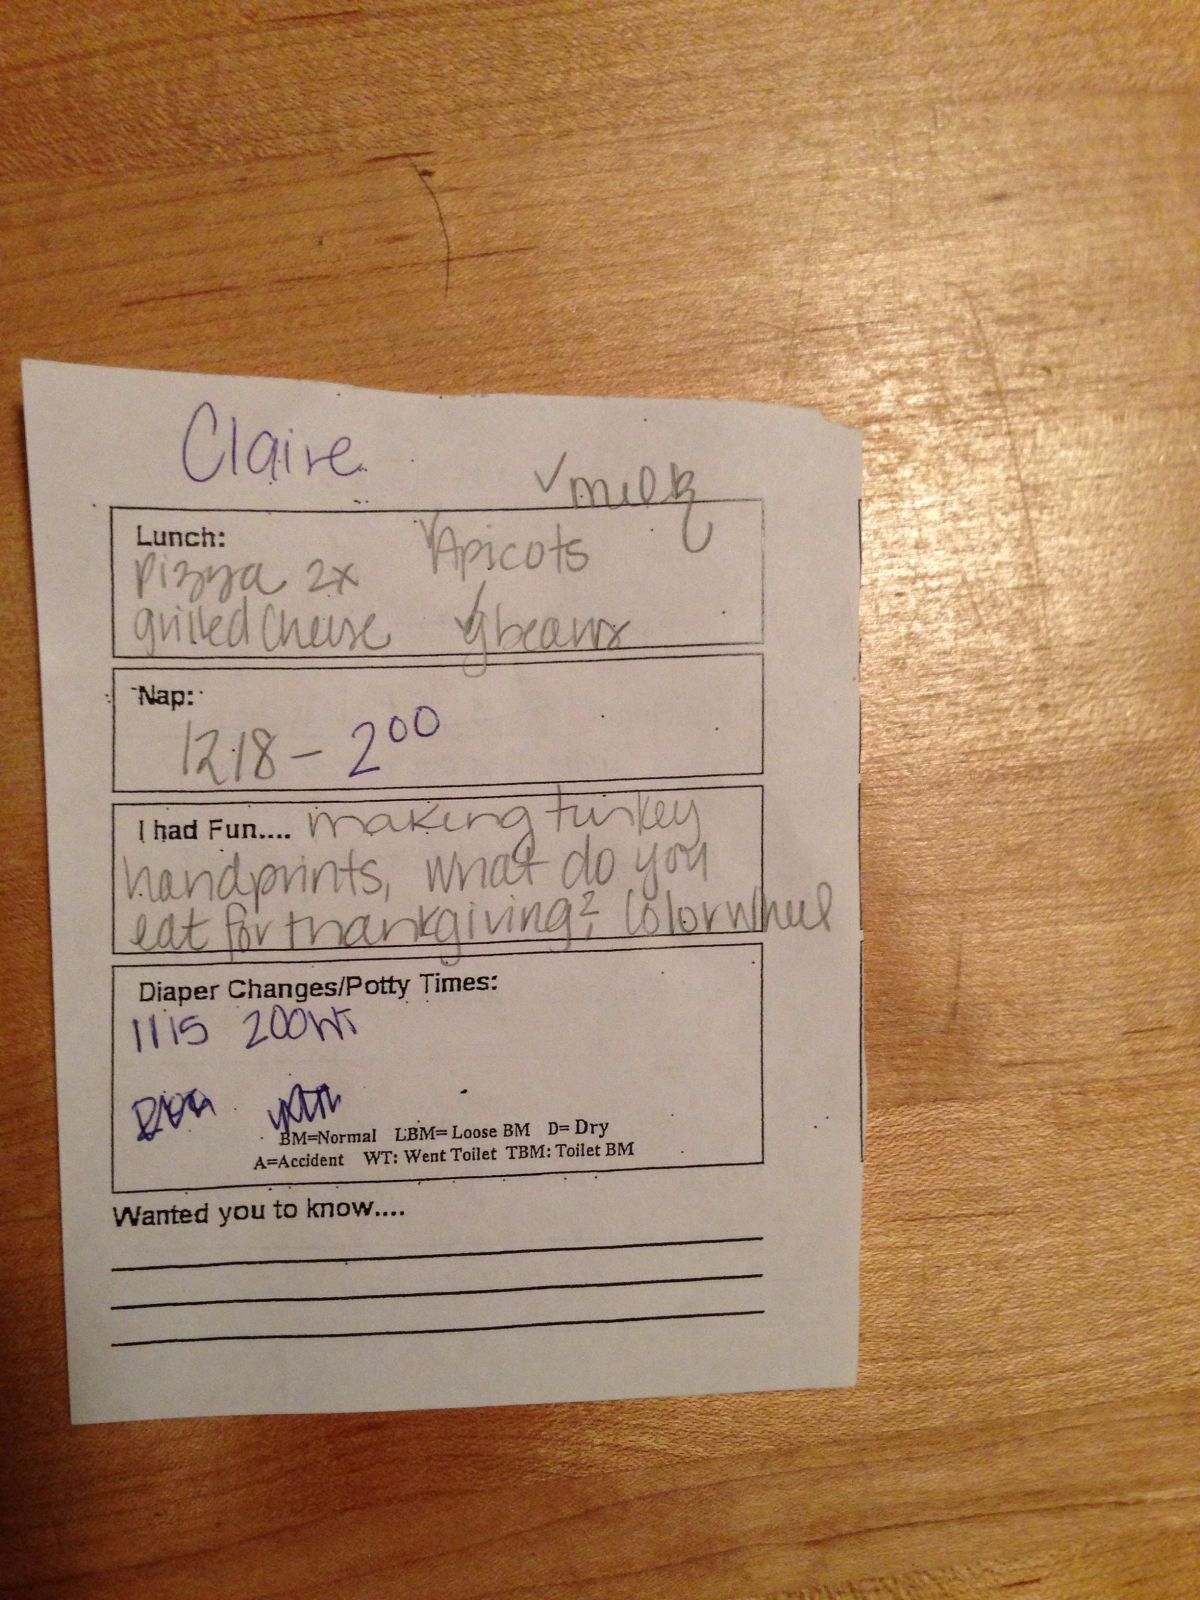 Claire
✓ milk
Lunch: ✓Apicots
pizza 2x
grilled cheese ✓g beans
Nap:
1218 - 200
I had Fun.... making turkey
handprints, what do you
eat for thankgiving?, color wheel
Diaper Changes/Potty Times:
1115 200WT
BM=Normal LBM= Loose BM D= Dry
A=Accident WT: Went Toilet TBM: Toilet BM
Wanted you to know....